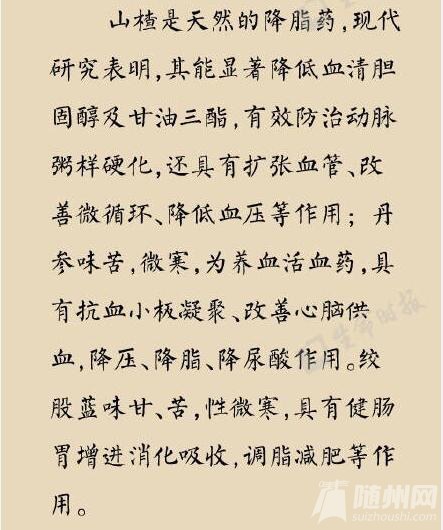 山楂是天然的降脂药,现代
研究表明,其能显著降低血清胆
固醇及甘油三酯,有效防治动脉
粥样硬化,还具有扩张血管、改
善微循环、降低血压等作用；丹
参味苦,微寒,为养血活血药,具
有抗血小板凝聚、改善心脑供
血,降压、降脂、降尿酸作用。绞
股蓝味甘、苦,性微寒,具有健肠
胃增进消化吸收,调脂减肥等作
用。
生命时报
随州网
suizhoushi.com